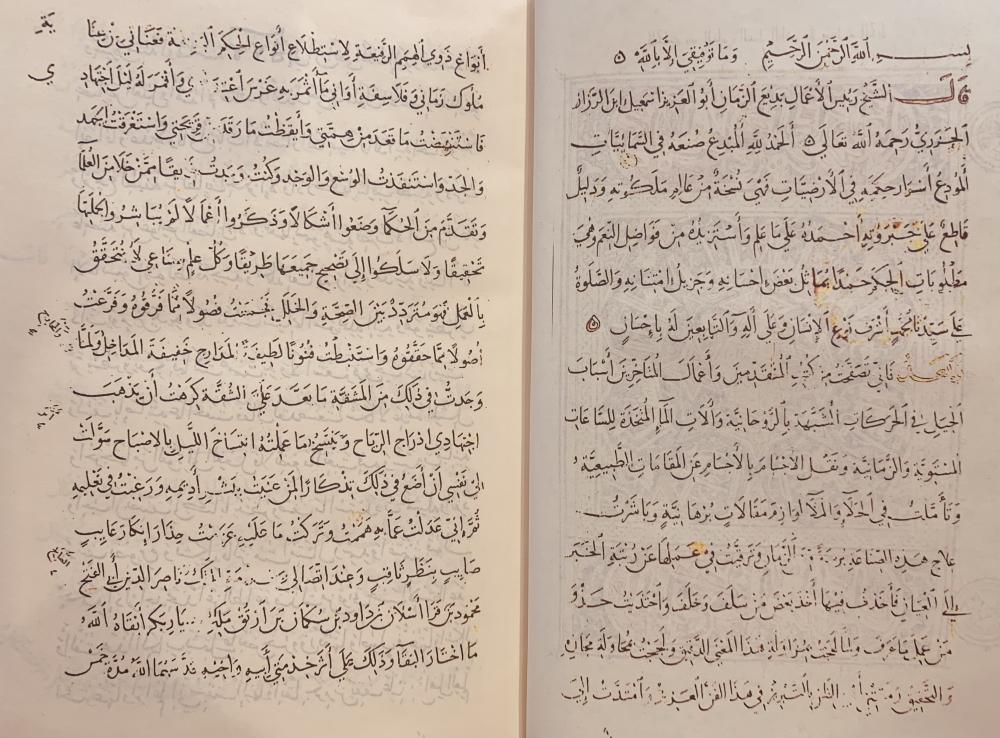 بسم الله الرحمن الرحيم وما توفيقي الا بالله
قال الشيخ رئيس الأعمال بديع الزمان أبو العز بن اسمعيل ابن الرزاز
الجزري رحمه الله تعالى الحمد لله المبدع صنعه في السمائيات
المودع أسرار حكمته في الارضيات فهي نسخة من عالم ملكوته ودليل
قاطع على جبروته أحمده على ما علم وأستزيده من فواضل النعم وهي
مطلوبات الحكم حمدا يماثل بعض احسانه وجزيل امتنانه والصلوة
على سيدنا محمد أشرف نوع الإنسان وعلى آله والتابعين له بإحسان
فاني تصفحت من كتب المتقدمين وأعمال المتأخرين أسباب
الحيل في الحركات المشبهة بالروحانية وآلات الماء المتخذة للساعات
المستوية والزمانية ونقل الأجسام بالأجسام عن المقامات الطبيعية
وتأملت في الخلاء والملاء لوازم مقالات برهانية وباشرت
علاج هذه الصناعة برهة من الزمان وترقيت في عملها عن رتبة الخبر
إلى العيان فأخذت فيها أخذ بعض من سلف وخلف واحتذيت حذو
من عمل ما عرف ولما لهجت بمزاولة هذا المعنى الدقيق ولججت محاولة مجاز
والتحقيق رمقتني أعين الظن التبريز في هذا الفن العزيز وامتدت إلي
أنواع ذوي الهمم الرفيعة لاستطلاع أنواع الحكم فعناني من عنا
ملوك زماني وفلاسفة أواني ما أثمر به غرس وأقمر له ليل اجتهاد
ي
فاستنهضت ما تقعد من همتي وأيقظت ما رقد من قريحتي واستغرقت الجهد
والجد واستنفدت الوسع والوجد وكنت وجدت فريقا ممن خلا من العلماء
وتقدم من الحكماء وصنعوا أشكالا وذكروا أعمالا لم يباشروا لجملتها
تحقيقا ولا سلكوا إلى تصحيح جميعها طريقا وكل علم صناعي لا يتحقق
بالعمل فهو متردد بين الصحة والخلل فجمعت فصولا مما فرقوه وفرعت
أصولا مما حققوه واستنبطت فنونا لطيفة المدارج خفيفة المداخل ولما
وجدت في ذلك من المشقة ما بعد على الشقة كرهت أن يذهب
اجتهادي ادراج الرياح وينسخ ما عملته انتساخ الليل بالإصباح سولت
الي نفسي أن أضع في ذلك تذكارا لمن عنيت ورغبت في تعليمه
ثم إني عدلت عما به هممت وتركت ما عليه عزمت حذار إنكار عايب
صايب بنظر ثاقب وعند اتصالي الملك ناصر الدين أبي الفتح
محمود بن قرا أسلان بن داود بن سكمان بن أرتق ملك ديار بكر أبقاه الله
ما اختار البقاء وذلك على أثر خدمتي أبيه وأخيه قدسهما الله مدة خمس